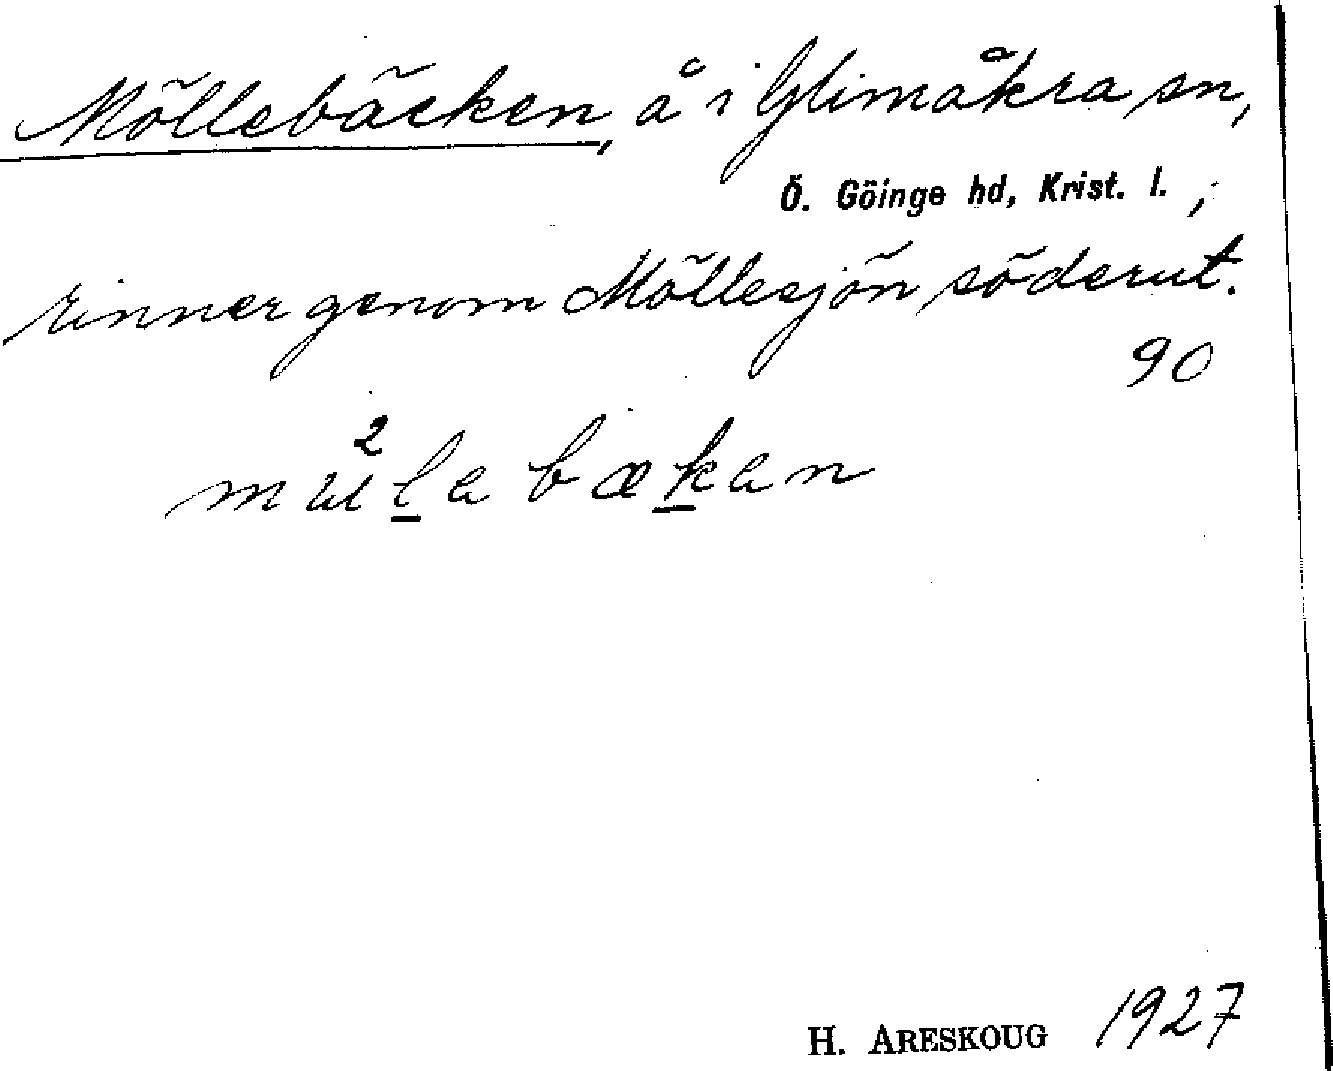 Möllebäcken, å i Glimåkra sn,
Ö. Göinge hd, Krist. l. ,
rinner genom Möllesjön söderut.
90
2
H. ARESKOUG 1927